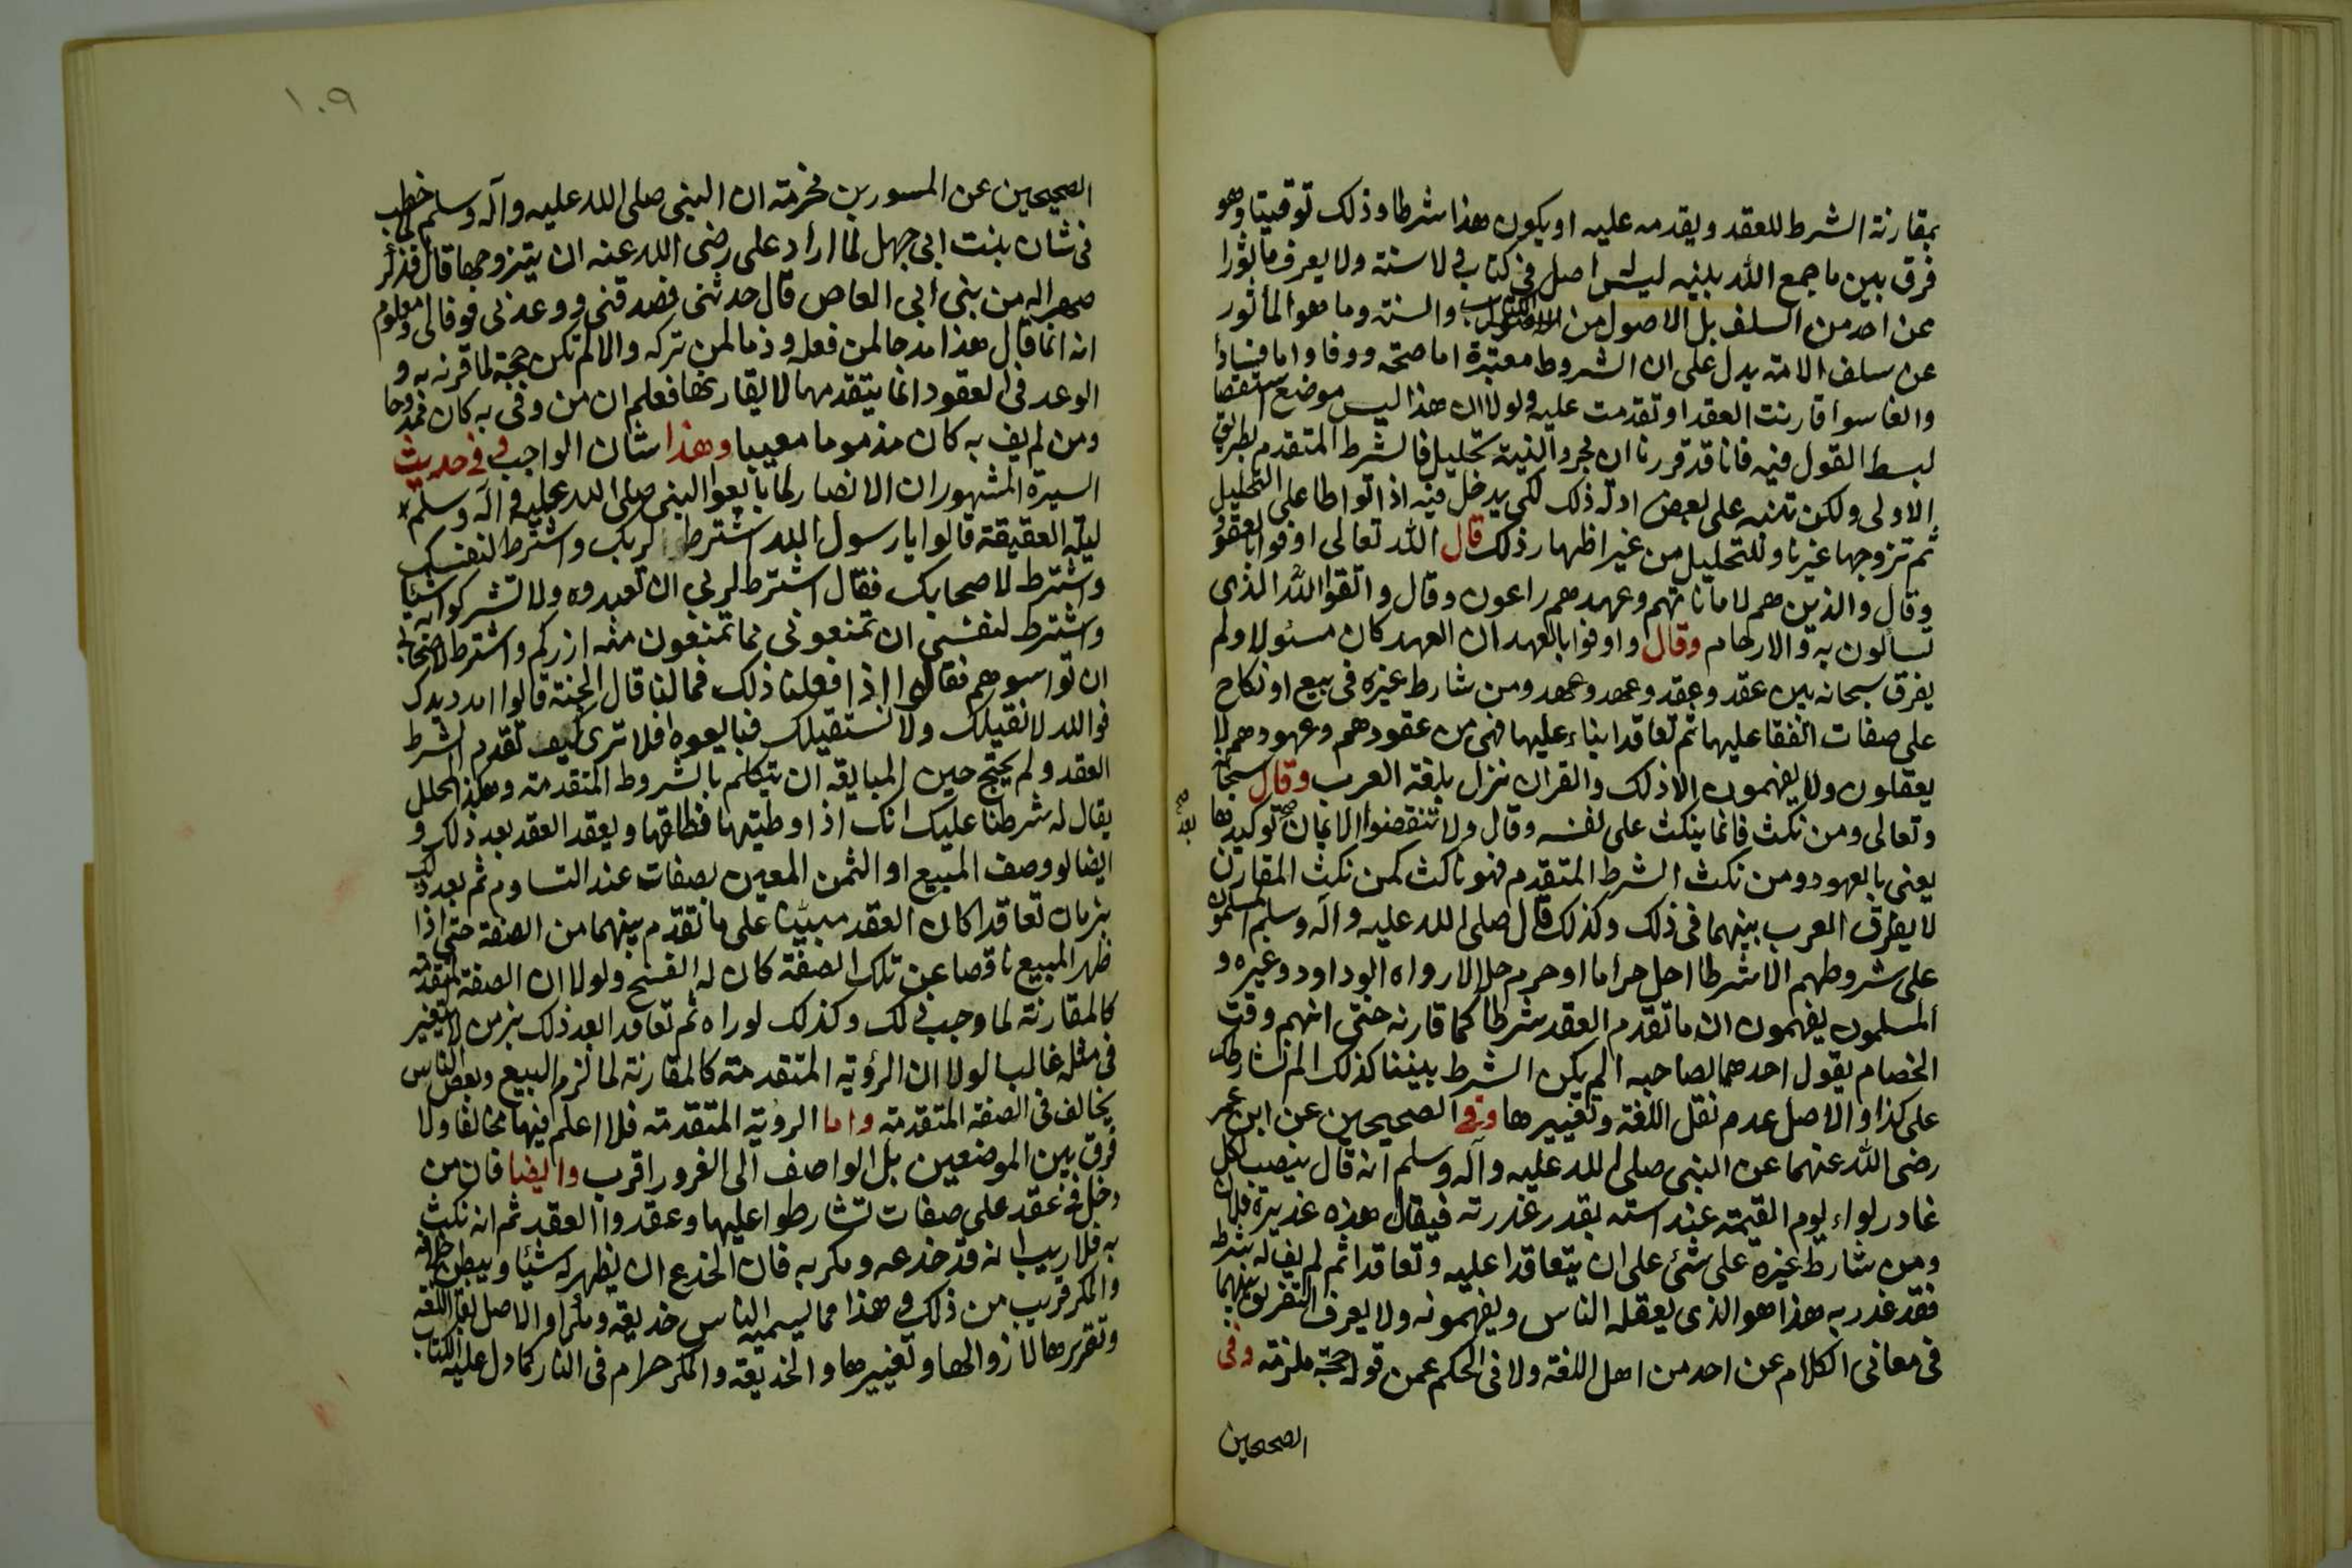 بمقارنة الشرط للعقد ويقدمه عليه او يكون هذا شرطا وذلك توقيتا وهو
فرق بين ما جمع الله بينه ليس له اصل في كتاب ولا سنة ولا يعرف مأثورا
عن احد من السلف بل الاصول من الكتاب والسنة وما هو المأثور
عن سلف الامة يدل على ان الشروط معتبرة اما صحة ووفا واما فسادا
والغا سوأ قارنت العقد او تقدمت عليه ولولا ان هذا ليس موضع استقصا
لبسط القول فيه فانا قد قررنا ان مجرد النية تحليل فالشرط المتقدم بطريق
الاولى ولكن ننبه على بعض ادلة ذلك لكي يدخل فيه اذا تواطا على التحليل
ثم تزوجها غير ناو للتحليل من غير اظهار ذلك قال الله تعالى اوفوا بالعقود
وقال والذين هم لاماناتهم وعهدهم راعون وقال واتقوا الله الذي
تسالون به والارحام وقال واوفوا بالعهد ان العهد كان مسئولا ولم
يفرق سبحانه بين عقد وعقد وعهد وعهد ومن شارط غيره في بيع او نكاح
على صفات اتفقا عليها ثم تعاقدا بناء عليها فهي من عقودهم وعهودهم لا
يعقلون ولا يفهمون الا ذلك والقران نزل بلغة العرب وقال سبحانه
وتعالى ومن نكث فانما ينكث على نفسه وقال ولا تنقضوا الايمان توكيدها
بعد صح
يعني بالعهود ومن نكث الشرط المتقدم فهو ناكث كمن نكث المقارن
لا يفرق العرب بينهما في ذلك وكذلك قال صلى الله عليه وآله وسلم المسلمون
على شروطهم الا شرطا احل حراما او حرم حلالا رواه ابو داود وغيره و
المسلمون يفهمون ان ما تقدم العقد شرطا كما قارنه حتى انهم وقت
الخصام يقول احدهما لصاحبه الم يكن الشرط بيننا كذلك الم نشارطك
على كذا والاصل عدم نقل اللغة وتغييرها وفي الصحيحين عن ابن عمر
رضي الله عنهما عن النبي صلى الله عليه وآله وسلم انه قال ينصب لكل
غادر لواء يوم القيمة عند استه بقدر غدرته فيقال هذه غديرة فلان
ومن شارط غيره على شئ على ان يتعاقدا عليه وتعاقدا ثم لم يف له بشرطه
فقد غدر به هذا هو الذي يعقله الناس ويفهمونه ولا يعرف التفريق بينهما
في معاني الكلام عن احد من اهل اللغة ولا في الحكم عمن قوله حجة ملزمة وفي
الصحيحين
١٠٩
الصحيحين عن المسور بن مخرمة ان النبي صلى الله عليه وآله وسلم خطب
في شان بنت ابي جهل لما اراد علي رضي الله عنه ان يتزوجها قال فذكر
صهرا له من بني ابي العاص قال حدثني فصدقني ووعدني فوفا لي ومعلوم
انه انما قال هذا مدحا لمن فعله وذما لمن تركه والا لم تكن حجة لما قرنه به و
الوعد في العقود انما يتقدمها لا يقارنها فعلم ان من وفى به كان ممدوحا
ومن لم يف به كان مذموما معيبا وهذا شان الواجب وفي حديث
السيرة المشهور ان الانصار لما بايعوا النبي صلى الله عليه وآله وسلم
ليلة العقيقة قالوا يا رسول الله اشترط لربك واشترط لنفسك
واشترط لاصحابك فقال اشترط لربي ان تعبدوه ولا تشركوا به شيئا
واشترط لنفسي ان تمنعوني مما تمنعون منه ازركم واشترط لاصحابي
ان تواسوهم فقالوا اذا فعلنا ذلك فما لنا قال الجنة قالوا امدد يدك
فوالله لا نقيلك ولا نستقيلك فبايعوه افلا ترى كيف تقدم الشرط
العقد ولم يحتج حين المبايعة ان يتكلم بالشروط المتقدمة وهكذا المحلل
يقال له شرطنا عليك انك اذا وطيتها فطلقها ويعقد العقد بعد ذلك و
ايضا لو وصف المبيع او الثمن المعين بصفات عند التساوم ثم بعد ذلك
بزمان تعاقدا كان العقد مبنيا على ما تقدم بينهما من الصفة حتى اذا
ظهر المبيع ناقصا عن تلك الصفة كان له الفسخ ولولا ان الصفة المتقدمة
كالمقارنة لما وجب ذلك وكذلك لو راه ثم تعاقدا بعد ذلك بزمن لا يتغير
في مثله غالبا لولا ان الرؤية المتقدمة كالمقارنة لما لزم البيع وبعض الناس
يخالف في الصفة المتقدمة واما الروية المتقدمة فلا اعلم فيها مخالفا ولا
فرق بين الموضعين بل الواصف الى الغرور اقرب وايضا فان من
دخل في عقد على صفات تشارطوا عليها وعقدوا العقد ثم انه نكث
به فلا ريب انه قد خدعه ومكر به فان الخدع ان يظهر له شيئا ويبطن خلافه
والمكر قريب من ذلك وهذا مما يسميه الناس خديعة ومكرا والاصل بقاء اللغة
وتقريرها لا زوالها وتغييرها والخديعة والمكر حرام في النار كما دل عليه الكتاب